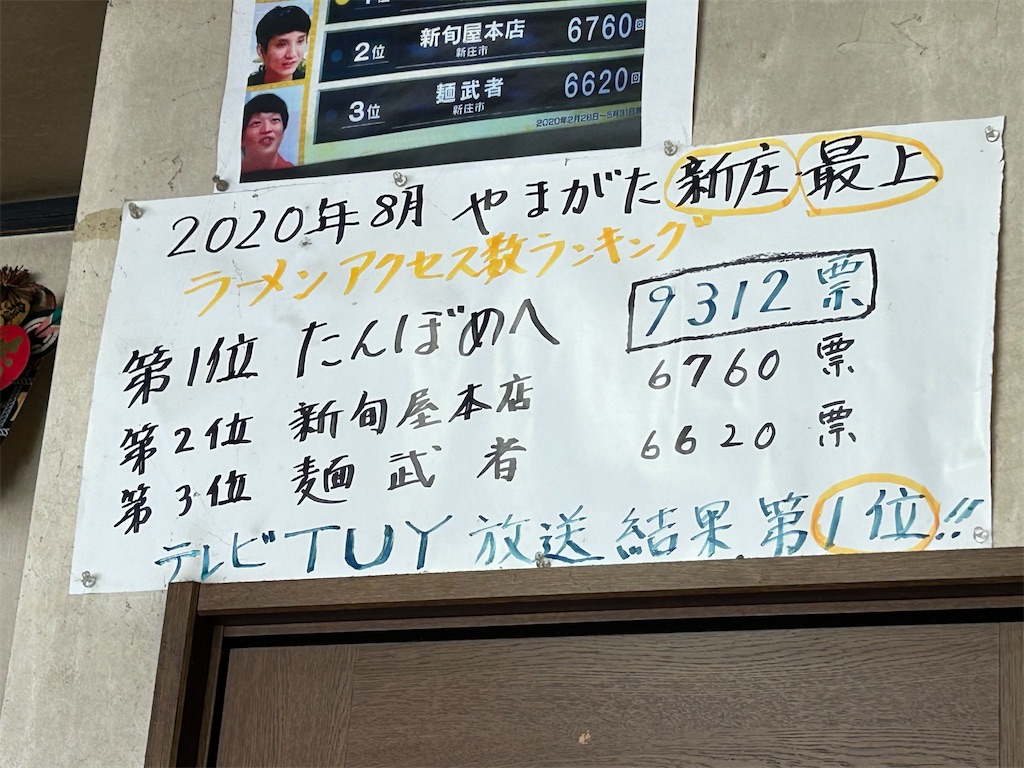 2位 新旬屋本店 6760回
新庄市
3位 麺武者 6620回
新庄市
2020年2月28日~5月31日
2020年8月 やまがた新庄最上
ラーメンアクセス数ランキング
第1位 たんぼめへ 9312票
第2位 新旬屋本店 6760票
第3位 麺武者 6620票
テレビTUY放送結果第1位!!